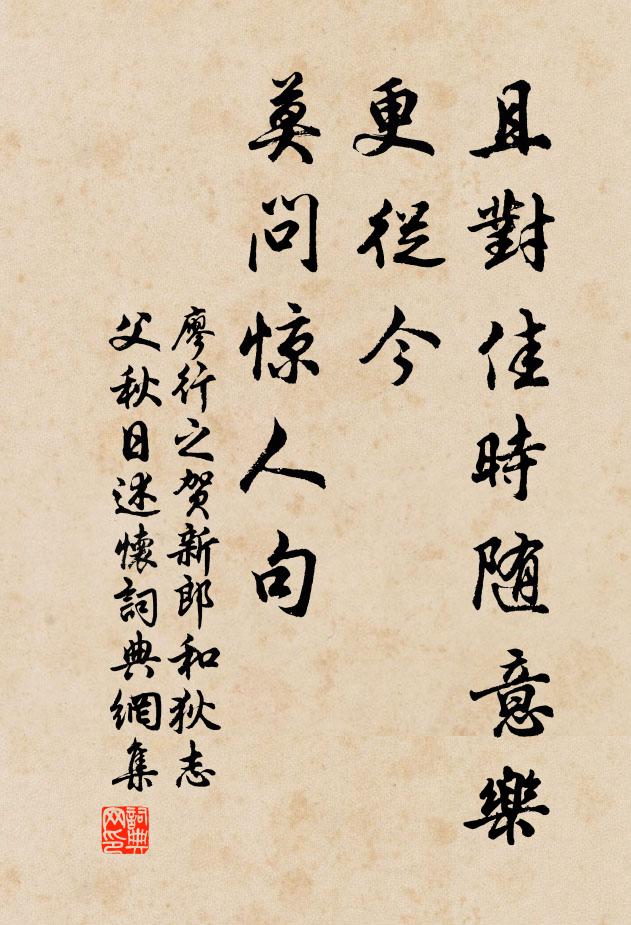 且對佳時随意樂
更從今
莫問惊人句
廖行之贺新郎和狄志
父秋日述懷詞典網集
詞典
网印